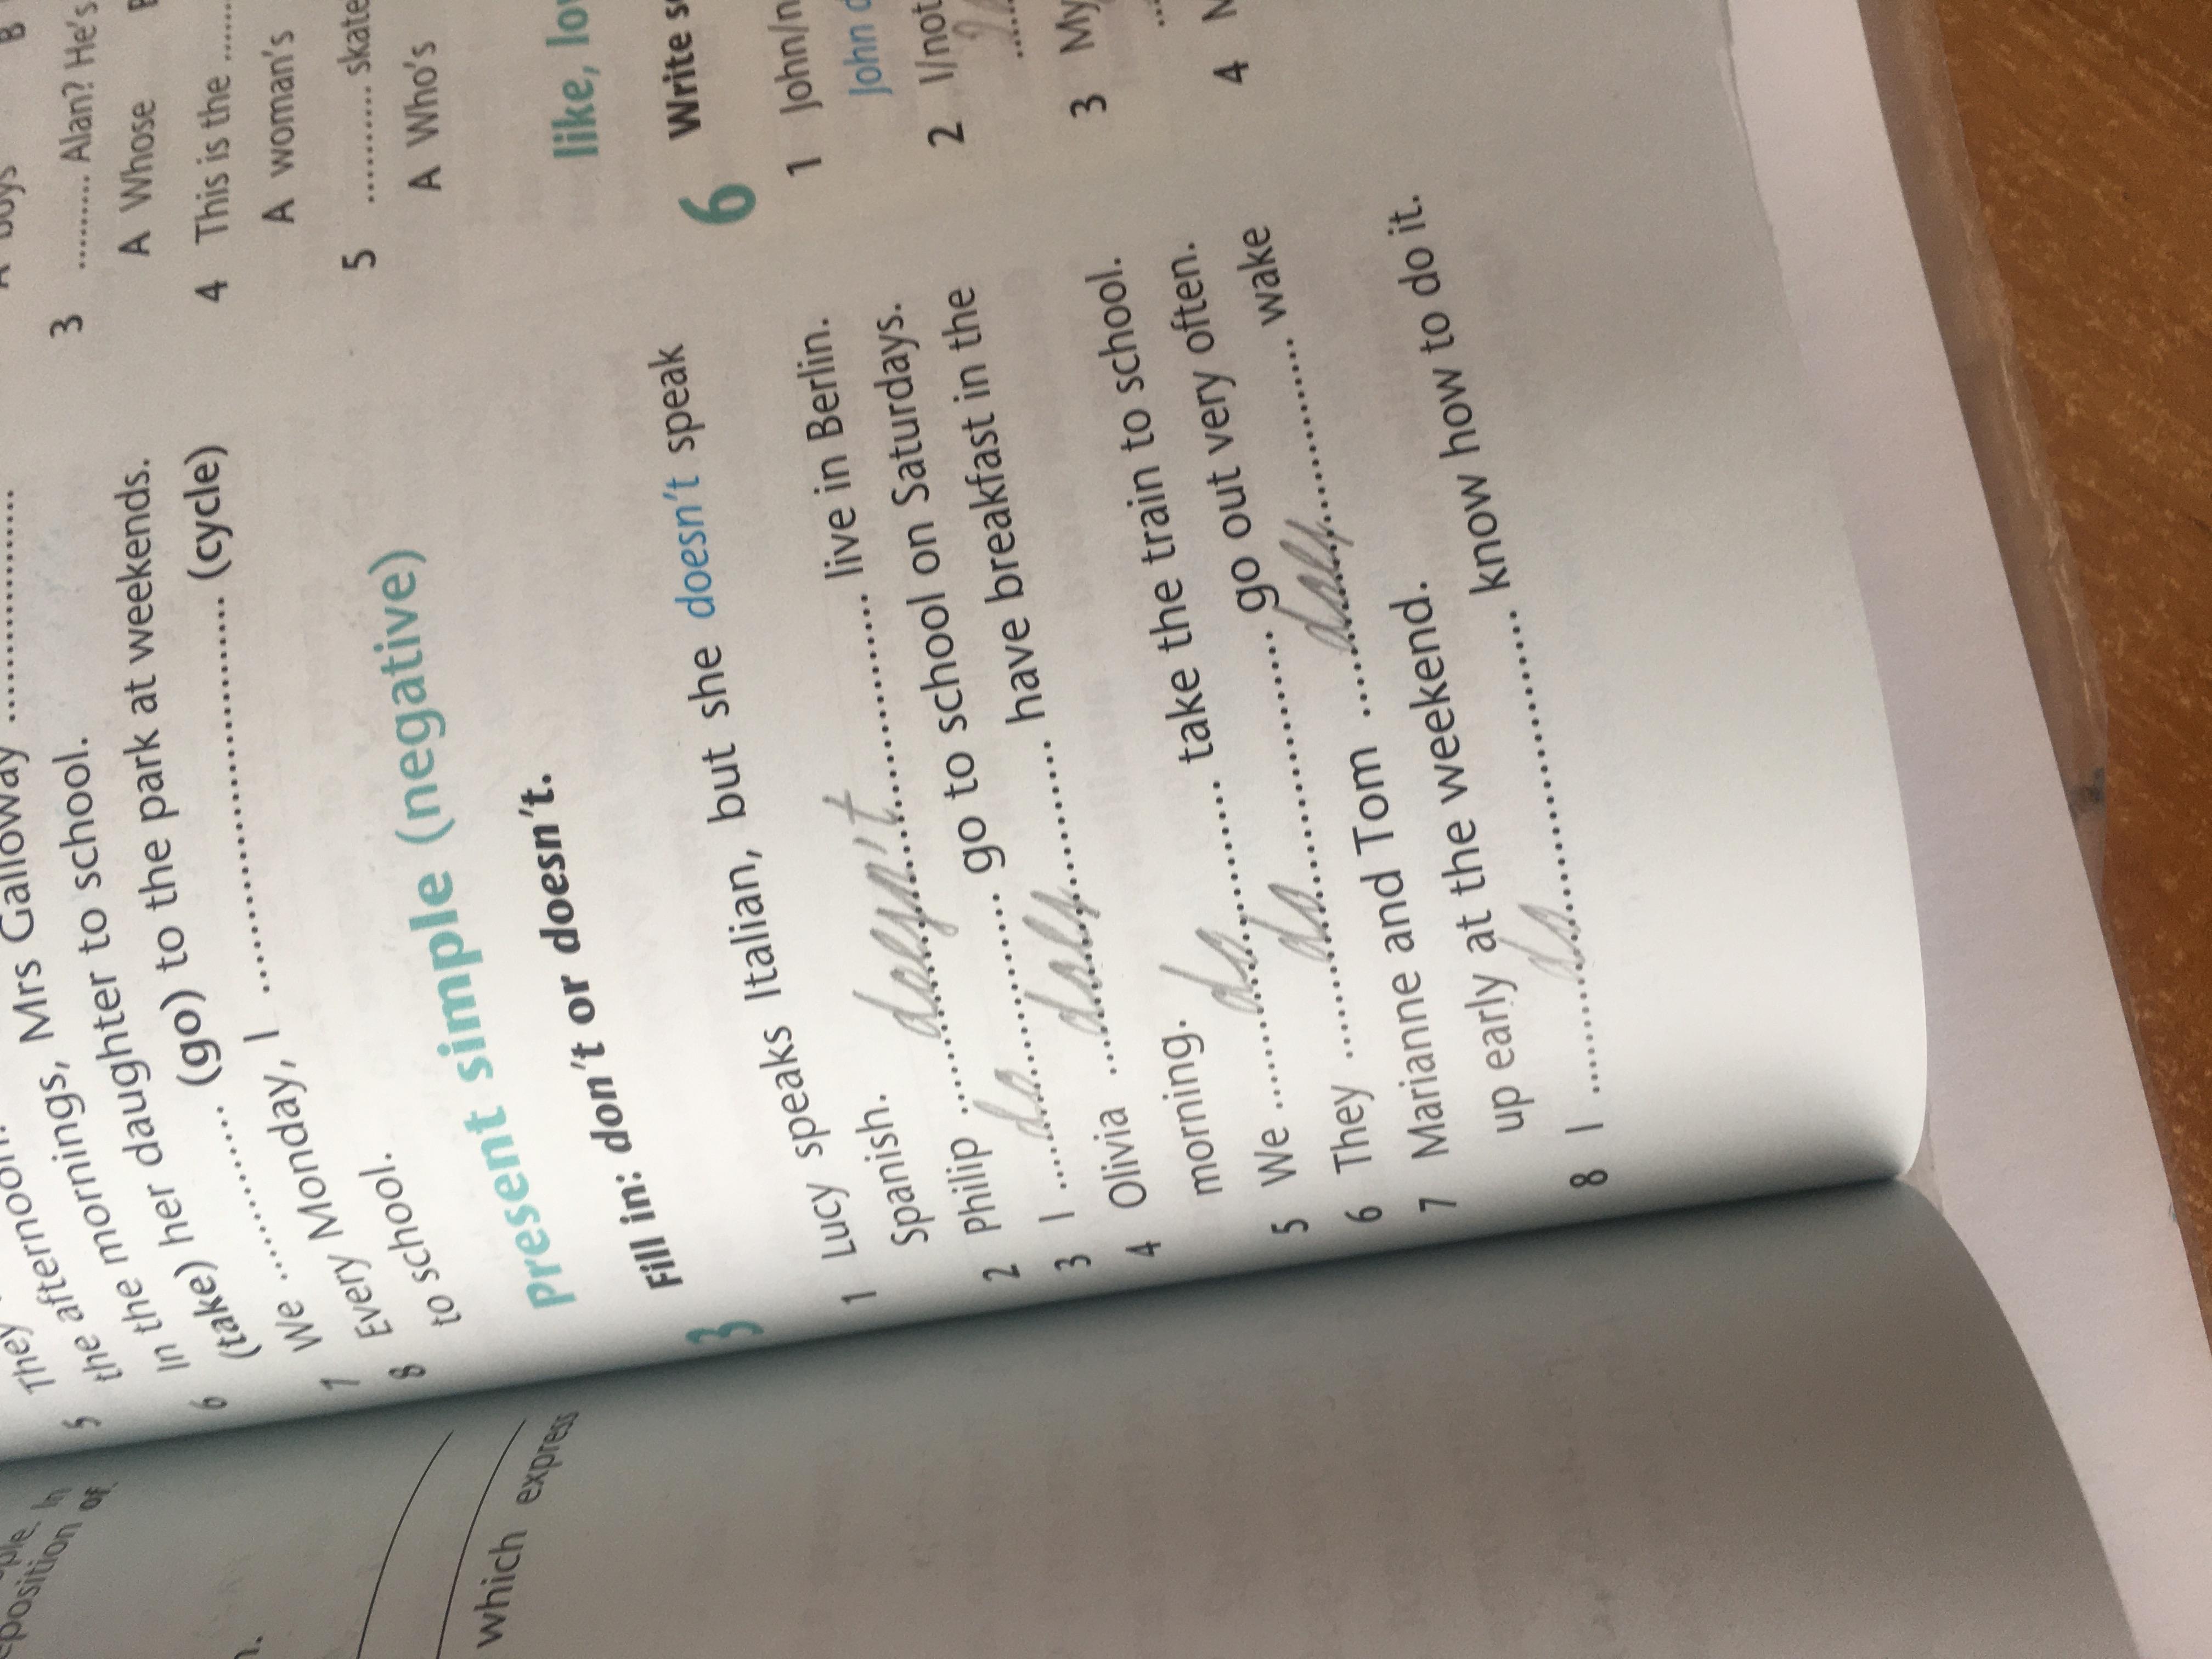 They
afternoon. Mrs Galloway ....................
5 the afternoons,
the mornings,
the daughter to school.
In her daughter to the park at weekends.
6 (take) her (go) to the park at weekends.
We ............... (go)
7 Every Monday, I ........................................ (cycle)
8 to school.
present simple (negative)
3 Fill in: don't or doesn't.
1 Lucy speaks Italian, but she doesn't speak
Spanish.
2 Philip doesn't live in Berlin.
3 I do go to school on Saturdays.
4 Olivia does have breakfast in the
morning.
5 We do take the train to school.
6 They do go out very often.
7 Marianne and Tom does wake
up early at the weekend.
8 I do know how to do it.
3 .......... Alan? He's
A Whose B
4 This is the
A woman's
5 .......... skate
A Who's
like, lo
6 Write s
1 John/n
John d
2 I/not
3 My
4
which express
position of